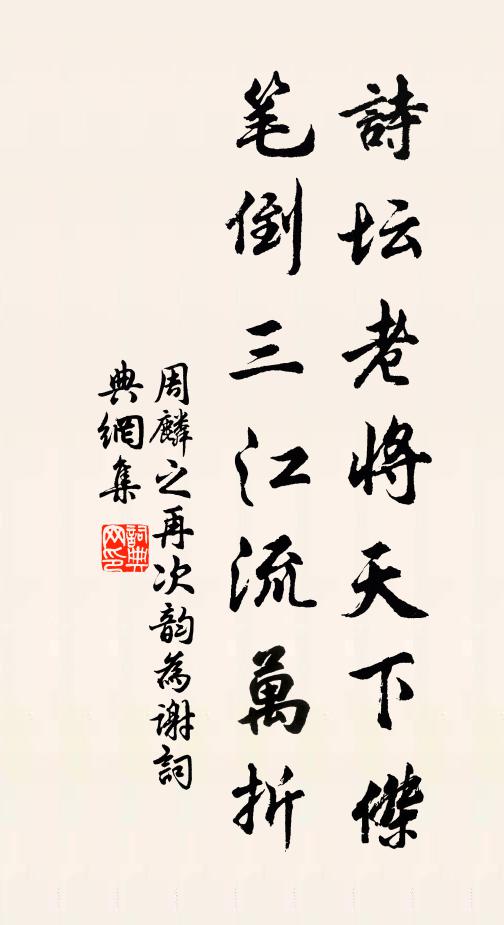 詩坛老将天下傑
笔倒三江流萬折
周麟之再次韵為谢詞
典網集
詞典
网印